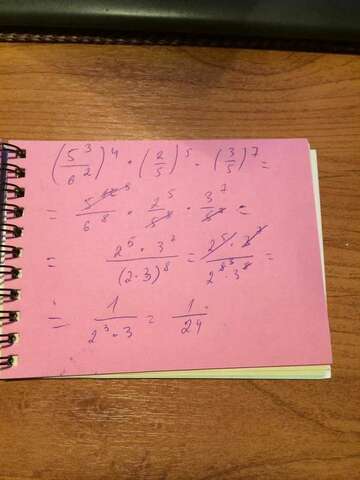 (5^3/6^2)^4 · (2/5)^5 · (3/5)^7 =
= 5^12/6^8 · 2^5/5^5 · 3^7/5^7 =
= 2^5 · 3^7/(2·3)^8 = 2^5 · 3^7/2^8 · 3^8 =
= 1/2^3 · 3 = 1/24